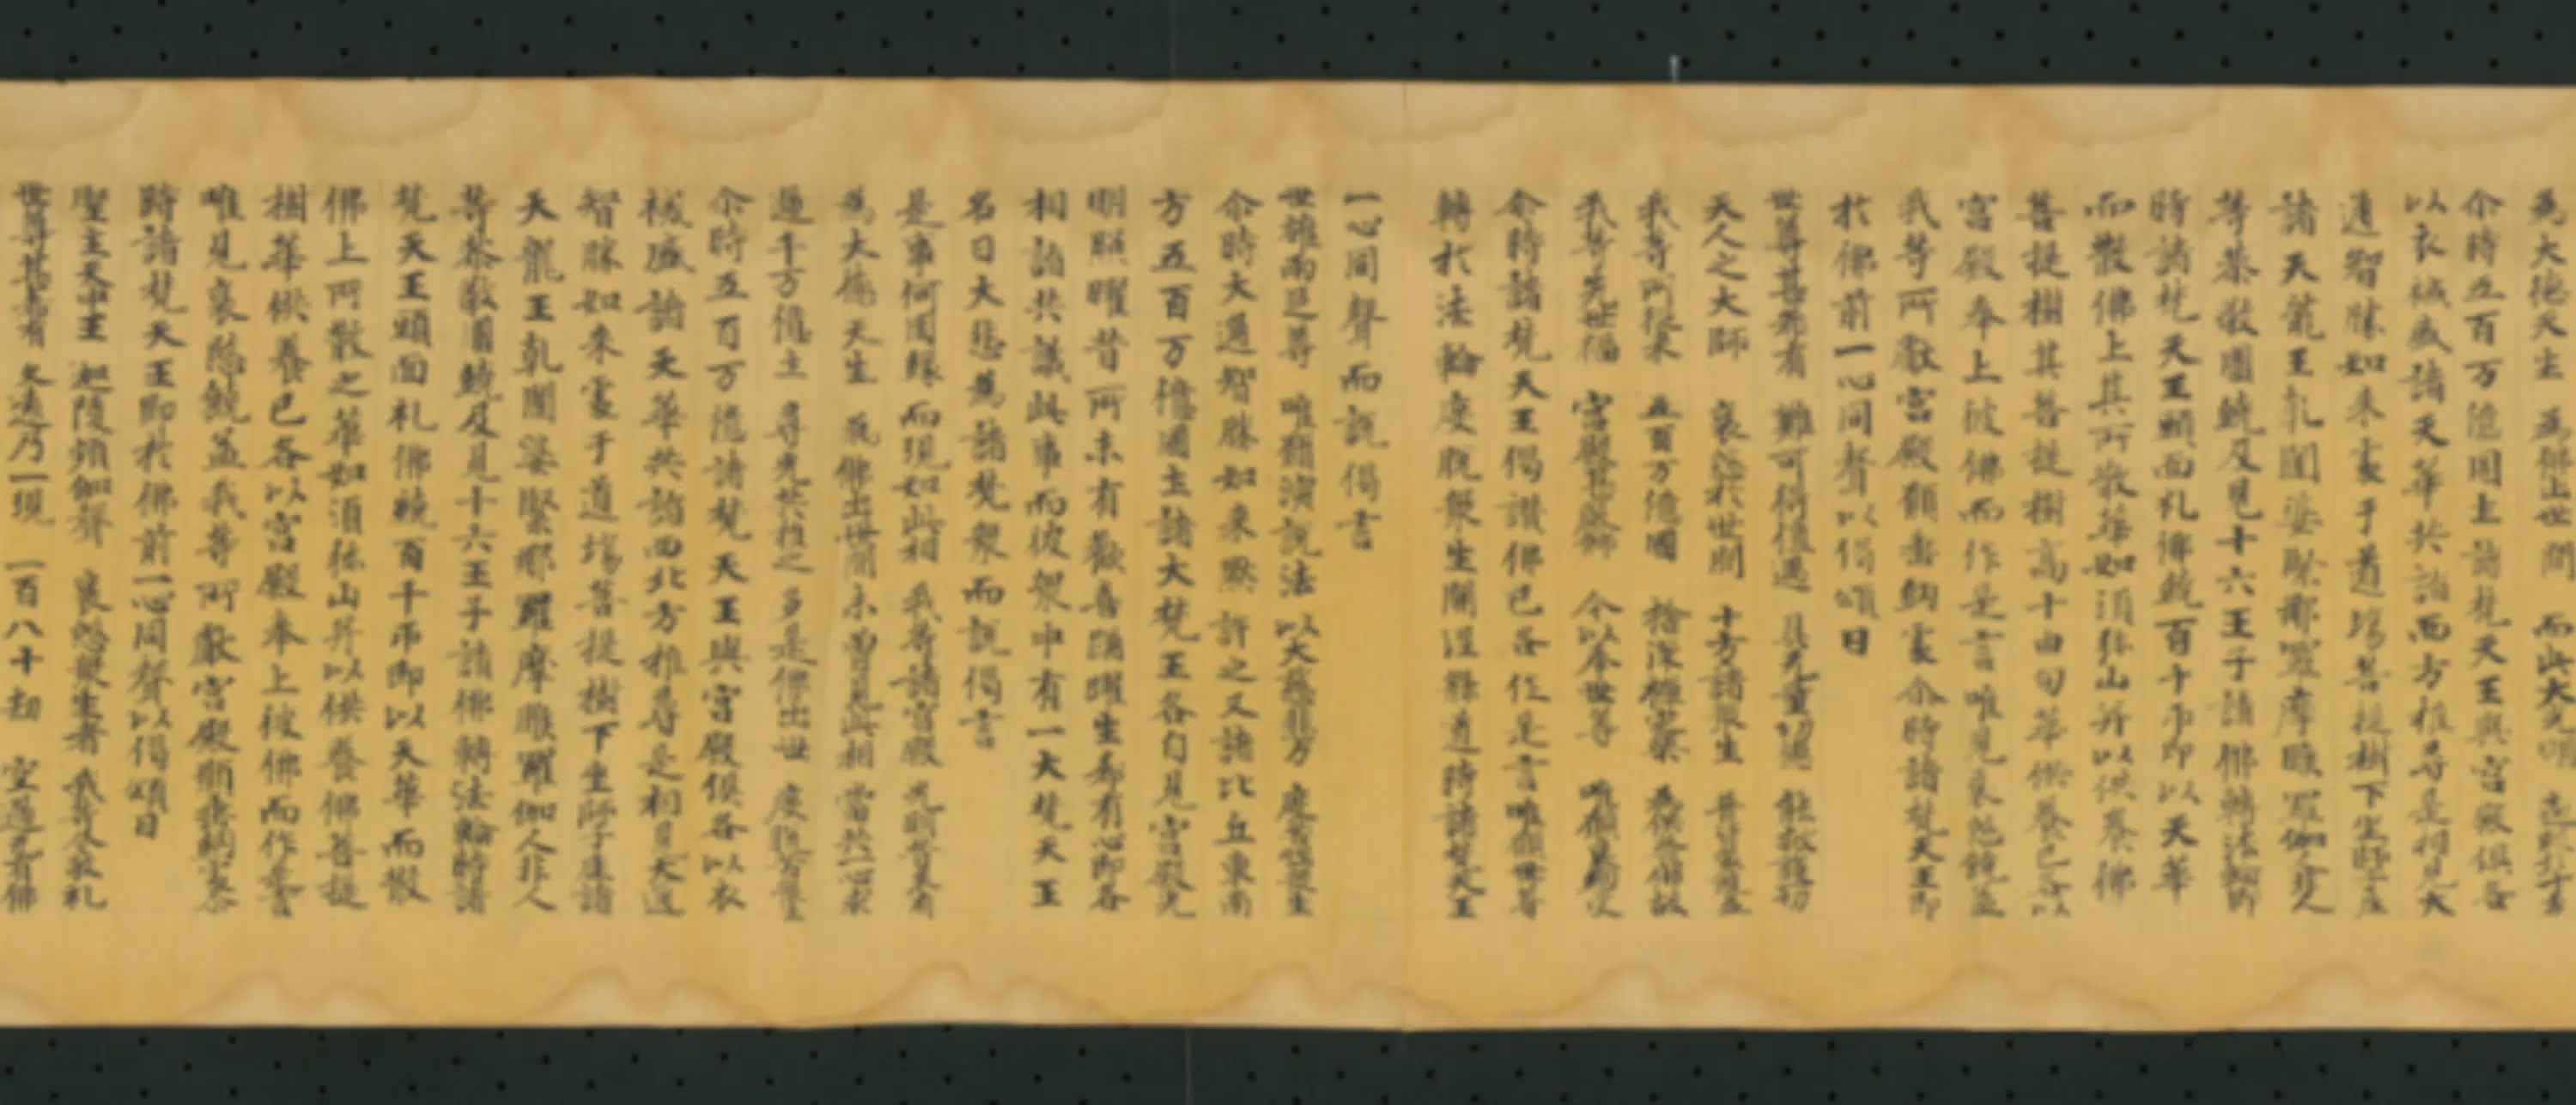 為大德天生　為佛出世間　而此大光明　遍照於十方
尒時五百万億國土諸梵天王與宮殿俱各
以衣裓盛諸天華共詣西方推尋是相見大
通智勝如来處于道場菩提樹下坐師子座
諸天龍王乹闥婆緊那羅摩睺羅伽人非人
等恭敬圍繞及見十六王子請佛轉法輪即
時諸梵天王頭面礼佛繞百千帀即以天華
而散佛上其所散華如湏弥山并以供養佛
菩提樹其菩提樹高十由旬華供養已各以
宮殿奉上彼佛而作是言唯見哀愍饒益
我等所獻宮殿願垂納處尒時諸梵天王即
於佛前一心同聲以偈頌曰
世尊甚希有　難可得值遇　具无量功德　能救護一切
天人之大師　哀愍於世間　十方諸衆生　普皆蒙饒益
我等所従来　五百万億國　捨深禪定樂　為供養佛故
我等先世福　宮殿甚嚴飾　今以奉世尊　唯願哀納受
尒時諸梵天王偈讃佛已各作是言唯願世尊
轉於法輪度脫衆生開涅槃道時諸梵天王
一心同聲而説偈言
世雄兩足尊　唯願演説法　以大慈悲力　度苦惱衆生
尒時大通智勝如来默許之又諸比丘東南
方五百万億國土諸大梵王各自見宮殿光
明照曜昔所未有歡喜踊躍生希有心即各
相詣共議此事而彼衆中有一大梵天王
名曰大悲為諸梵衆而説偈言
是事何因緣　而現如此相　我等諸宮殿　光明昔未有
為大德天生　為佛出世間　未曽見此相　當共一心求
過千万億土　尋光共推之　多是佛出世　度脫苦衆生
尒時五百万億諸梵天王與宮殿俱各以衣
裓盛諸天華共詣西北方推尋是相見大通
智勝如来處于道場菩提樹下坐師子座諸
天龍王乹闥婆緊那羅摩睺羅伽人非人
等恭敬圍繞及見十六王子請佛轉法輪時諸
梵天王頭面礼佛繞百千帀即以天華而散
佛上所散之華如湏弥山并以供養佛菩提
樹華供養已各以宮殿奉上彼佛而作是言
唯見哀愍饒益我等所獻宮殿願垂納處尒
時諸梵天王即於佛前一心同聲以偈頌曰
聖主天中王　迦陵頻伽聲　哀愍衆生者　我等今敬礼
世尊甚希有　久遠乃一現　一百八十劫　空過无有佛